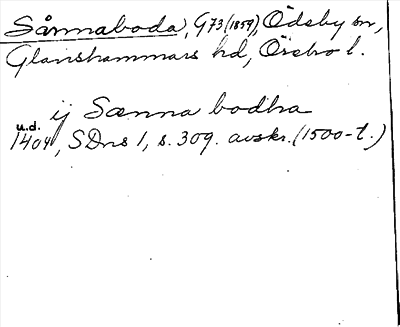 Sånnaboda, G73 (1859), Ödeby sn,
Glanshammars hd, Örebro l.
ij Sænna bodha
u.d.
1404, SDns 1, s. 309. avskr. (1500-t.)